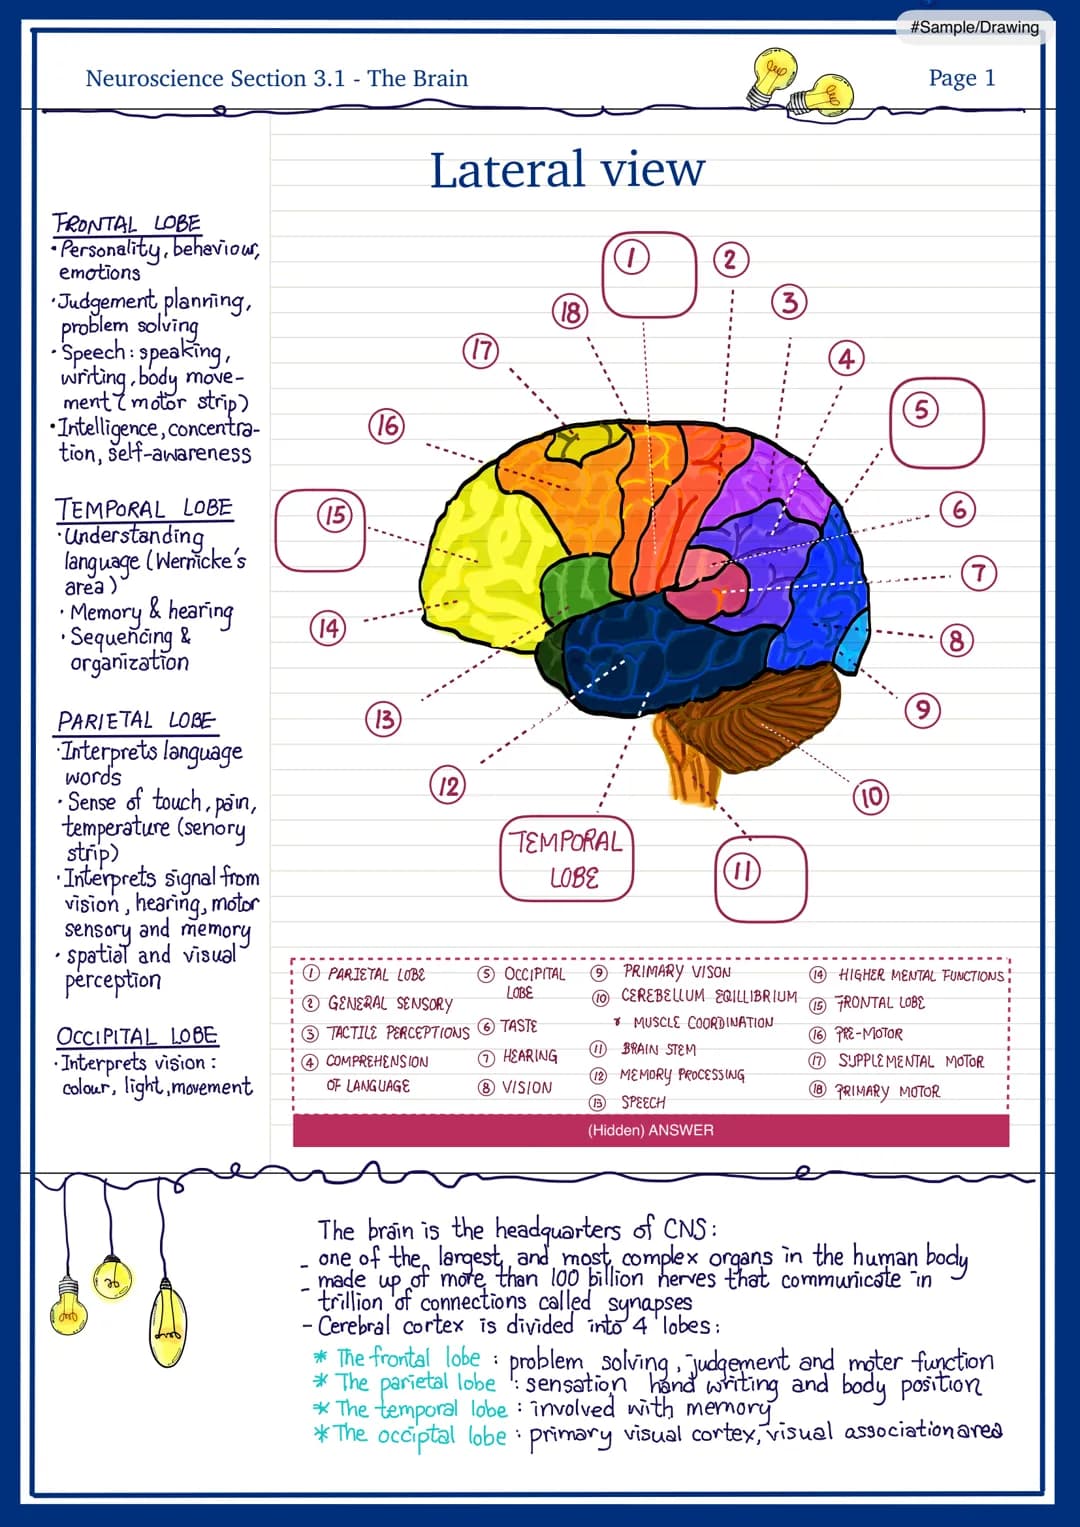 #Sample/Drawing
Neuroscience Section 3.1 - The Brain
Page 1
Lateral view
FRONTAL LOBE
· Personality, behaviour,
emotions
· Judgement planning,
problem solving
· Speech: speaking,
writing, body move-
ment (motor strip)
· Intelligence, concentra-
tion, self-awareness
TEMPORAL LOBE
· Understanding
language (Wernicke's
area)
· Memory & hearing
· Sequencing &
organization
PARIETAL LOBE
· Interprets language
words
· Sense of touch, pain,
temperature (senory
strip)
· Interprets signal from
vision, hearing, motor
sensory and memory
· spatial and visual
perception
OCCIPITAL LOBE
· Interprets vision:
colour, light, movement
1
2
3
4
5
6
7
8
9
10
11
TEMPORAL
LOBE
12
13
14
15
16
17
18
1 PARIETAL LOBE
2 GENERAL SENSORY
3 TACTILE PERCEPTIONS
4 COMPREHENSION
OF LANGUAGE
5 OCCIPITAL
LOBE
6 TASTE
7 HEARING
8 VISION
9 PRIMARY VISON
10 CEREBELLUM EQILLIBRIUM
& MUSCLE COORDINATION
11 BRAIN STEM
12 MEMORY PROCESSING
13 SPEECH
14 HIGHER MENTAL FUNCTIONS
15 FRONTAL LOBE
16 PRE-MOTOR
17 SUPPLEMENTAL MOTOR
18 PRIMARY MOTOR
(Hidden) ANSWER
The brain is the headquarters of CNS:
- one of the largest, and most complex organs in the human body
- made up of more than 100 billion nerves that communicate in
trillion of connections called synapses
- Cerebral cortex is divided into 4 lobes:
* The frontal lobe : problem solving, judgement and moter function
* The parietal lobe : sensation hand writing and body position
* The temporal lobe : involved with memory
* The occiptal lobe : primary visual cortex, visual association area